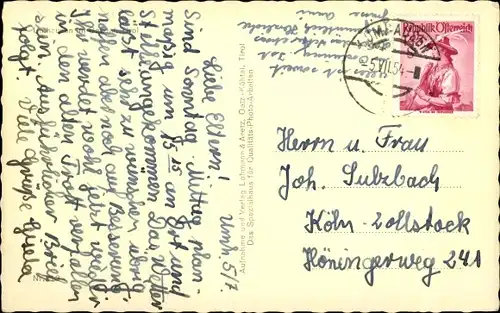 Umh. 5/7.
Liebe Eltern!
Sind Sonntag Mittag plan-
mäsig um ½ 15 an Ort und
Stelle angekommen. Das Wetter
läßt sehr zu wünschen übrig
hoffen aber noch auf Besserung
wendet wohl jetzt wieder
in den alten Trott verfallen
sein. Ausführlicher Brief
folgt Viele Grüße Gisela
Aufnahme und Verlag Lohmann & Aretz, Oetz-Kühtai, Tirol
Das Spezialhaus für Qualitäts-Photo-Arbeiten
Republik Österreich
5.VII.54
Herrn u. Frau
Joh. Sulzbach
Köln-Zollstock
Höningerweg 241